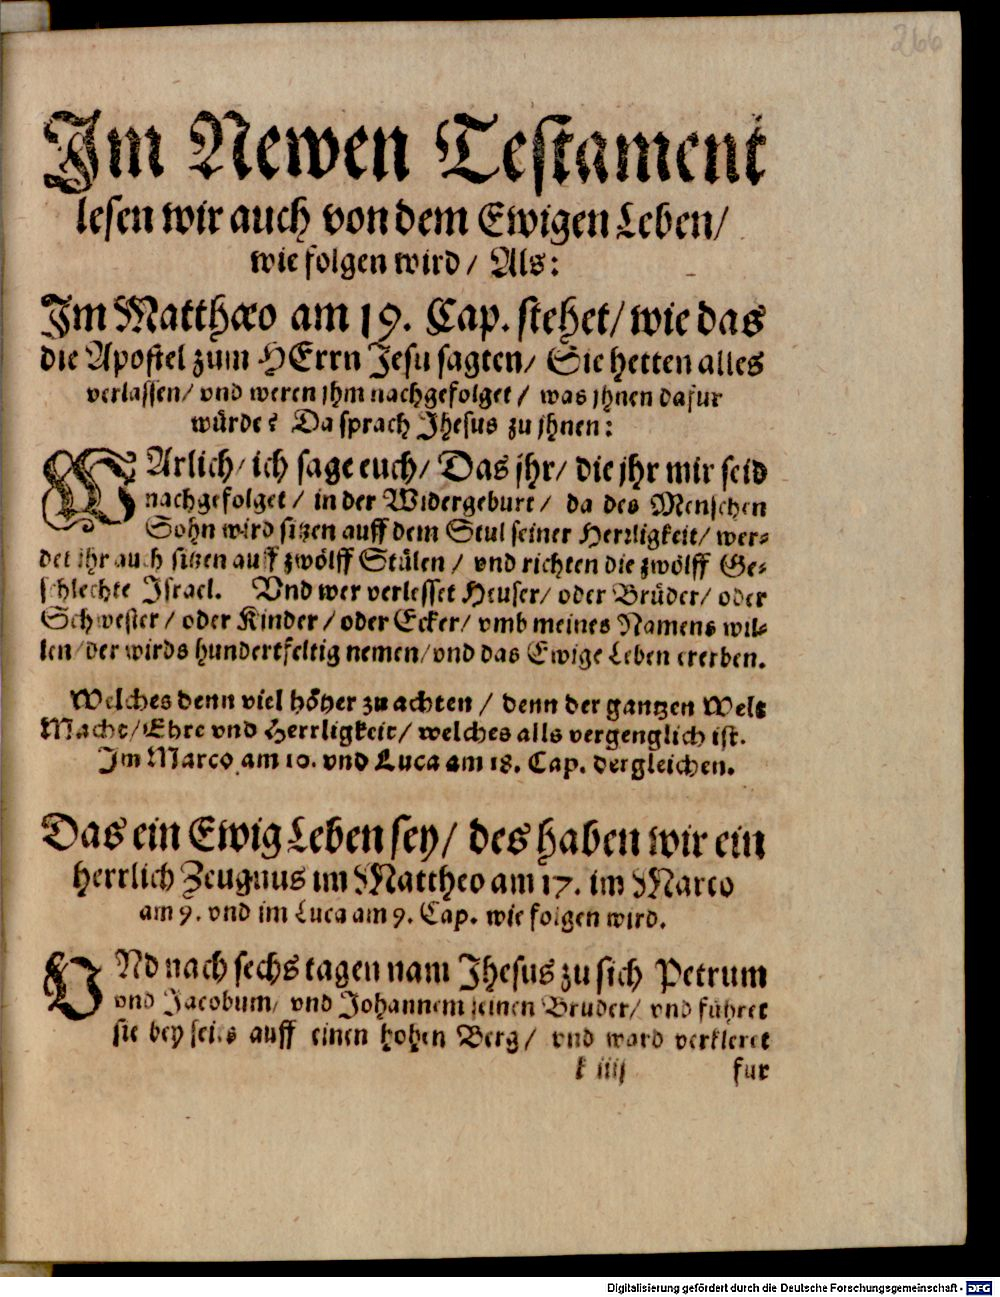 266
Im Newen Testament
lesen wir auch von dem Ewigen Leben/
wie folgen wird/ Als:
Im Matthæo am 19. Cap. stehet/ wie das
die Apostel zum HErrn Jesu sagten/ Sie hetten alles
verlassen/ vnd weren jhm nachgefolget/ was jhnen dafur
würde? Da sprach Jhesus zu jhnen:
WArlich/ ich sage euch/ Das jhr/ die jhr mir seid
nachgefolget/ in der Widergeburt/ da des Menschen
Sohn wird sitzen auff dem Stul seiner Herrligkeit/ wer-
det jhr auch sitzen auff zwölff Stülen/ vnd richten die zwölff Ge-
schlechte Israel. Vnd wer verlesset Heuser/ oder Brüder/ oder
Schwester/ oder Kinder/ oder Ecker/ vmb meines Namens wil-
len/ der wirds hundertfeltig nemen/ vnd das Ewige Leben ererben.
Welches denn viel höher zu achten/ denn der gantzen Welt
Macht/ Ehre vnd Herrligkeit/ welches alls vergenglich ist.
Im Marco am 10. vnd Luca am 18. Cap. dergleichen.
Das ein Ewig Leben sey/ des haben wir ein
herrlich Zeugnus im Mattheo am 17. im Marco
am 9. vnd im Luca am 9. Cap. wie folgen wird.
VNd nach sechs tagen nam Jhesus zu sich Petrum
vnd Jacobum/ vnd Johannem seinen Bruder/ vnd führet
sie bey seits auff einen hohen Berg/ vnd ward verkleret
k iiij fur
Digitalisierung gefördert durch die Deutsche Forschungsgemeinschaft - DFG